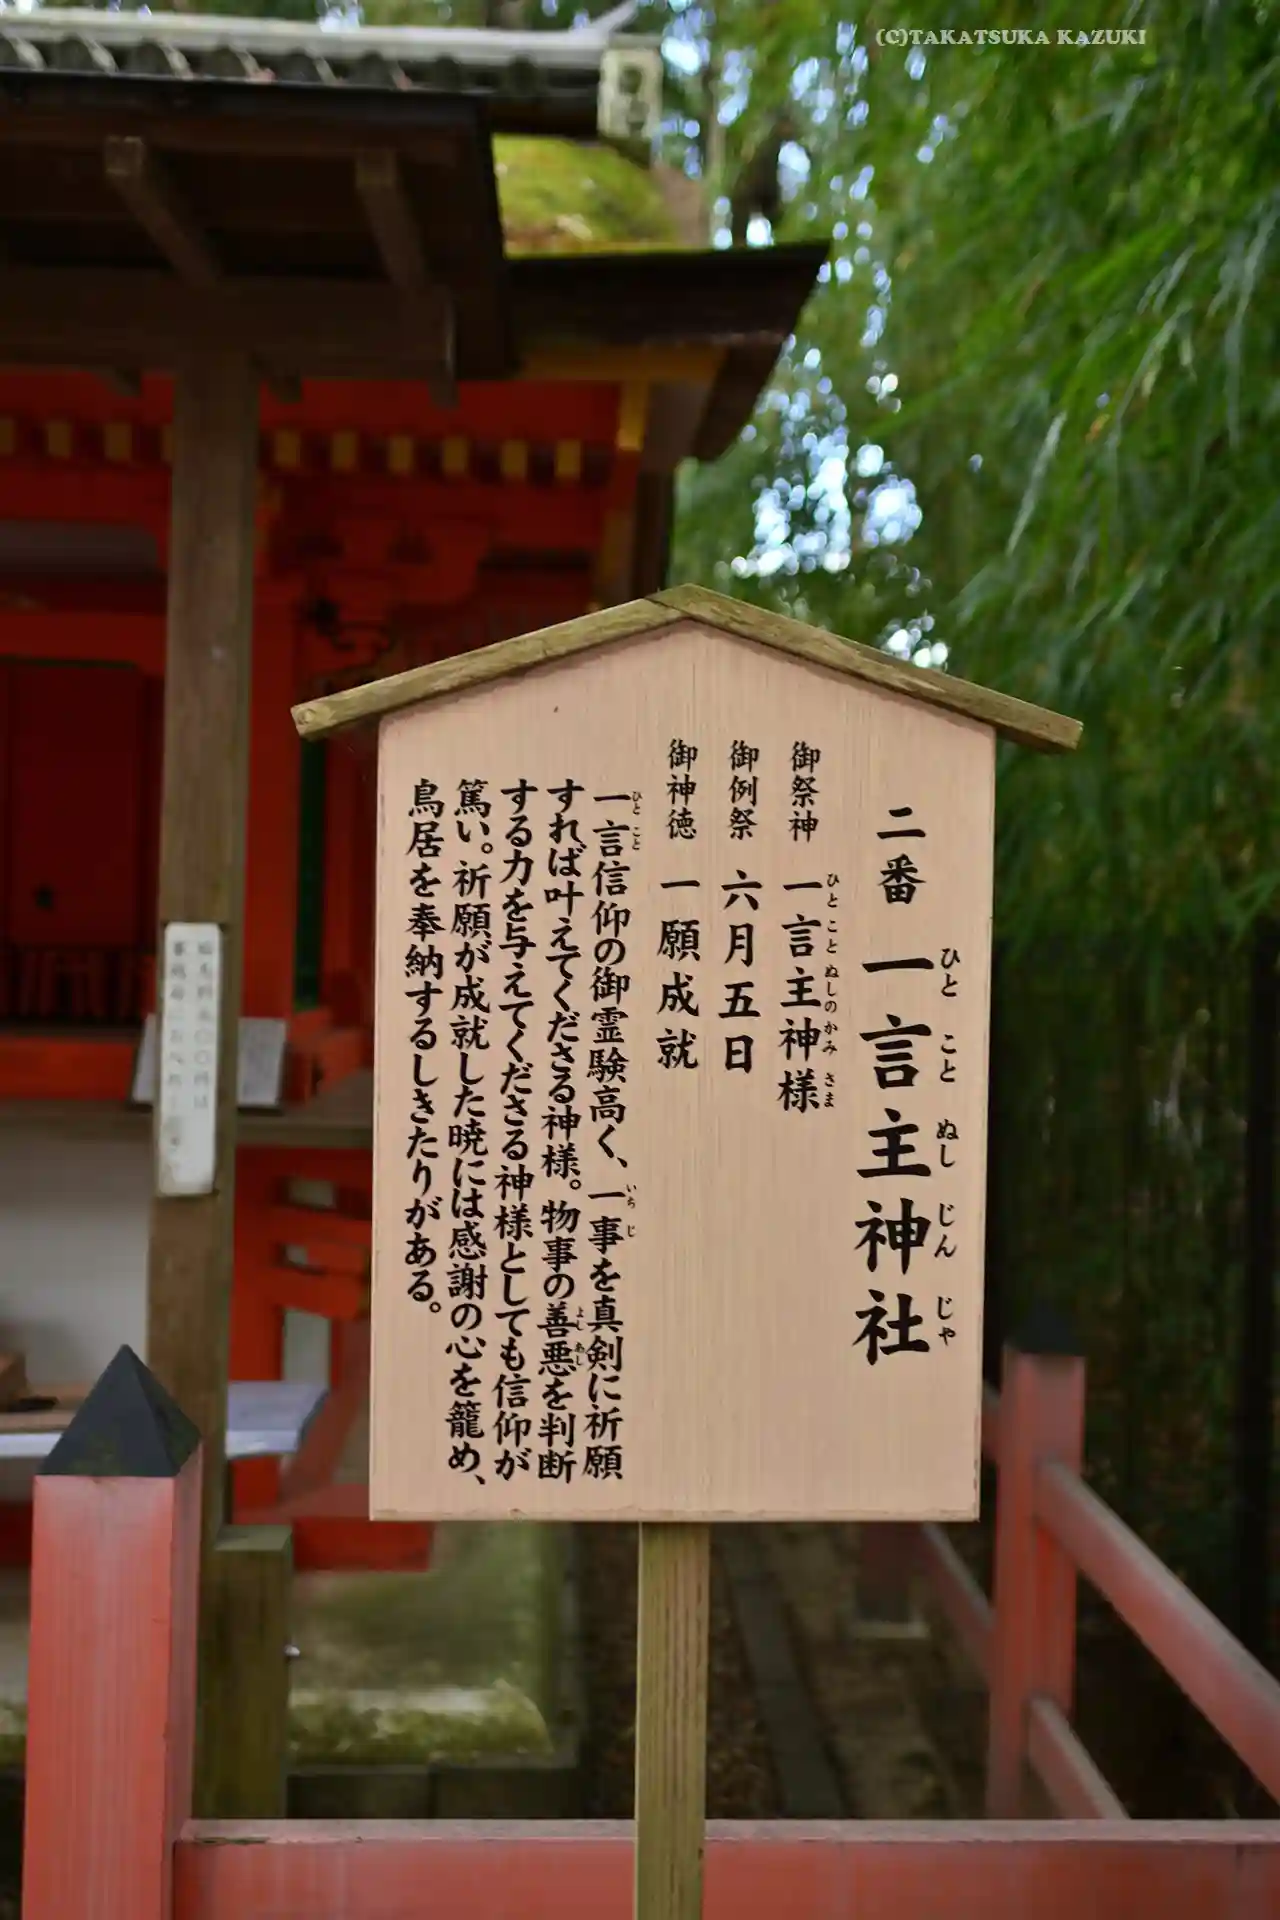 (C)TAKATSUKA KAZUKI
二番 一言主神社
ひと こと ぬし じん じゃ
御祭神 一言主神様
ひと こと ぬしの かみ さま
御例祭 六月五日
御神徳 一願成就
一言信仰の御霊験高く、一事を真剣に祈願
ひと こと いち じ
すれば叶えてくださる神様。物事の善悪を判断
よし あし
する力を与えてくださる神様としても信仰が
篤い。祈願が成就した暁には感謝の心を籠め、
鳥居を奉納するしきたりがある。